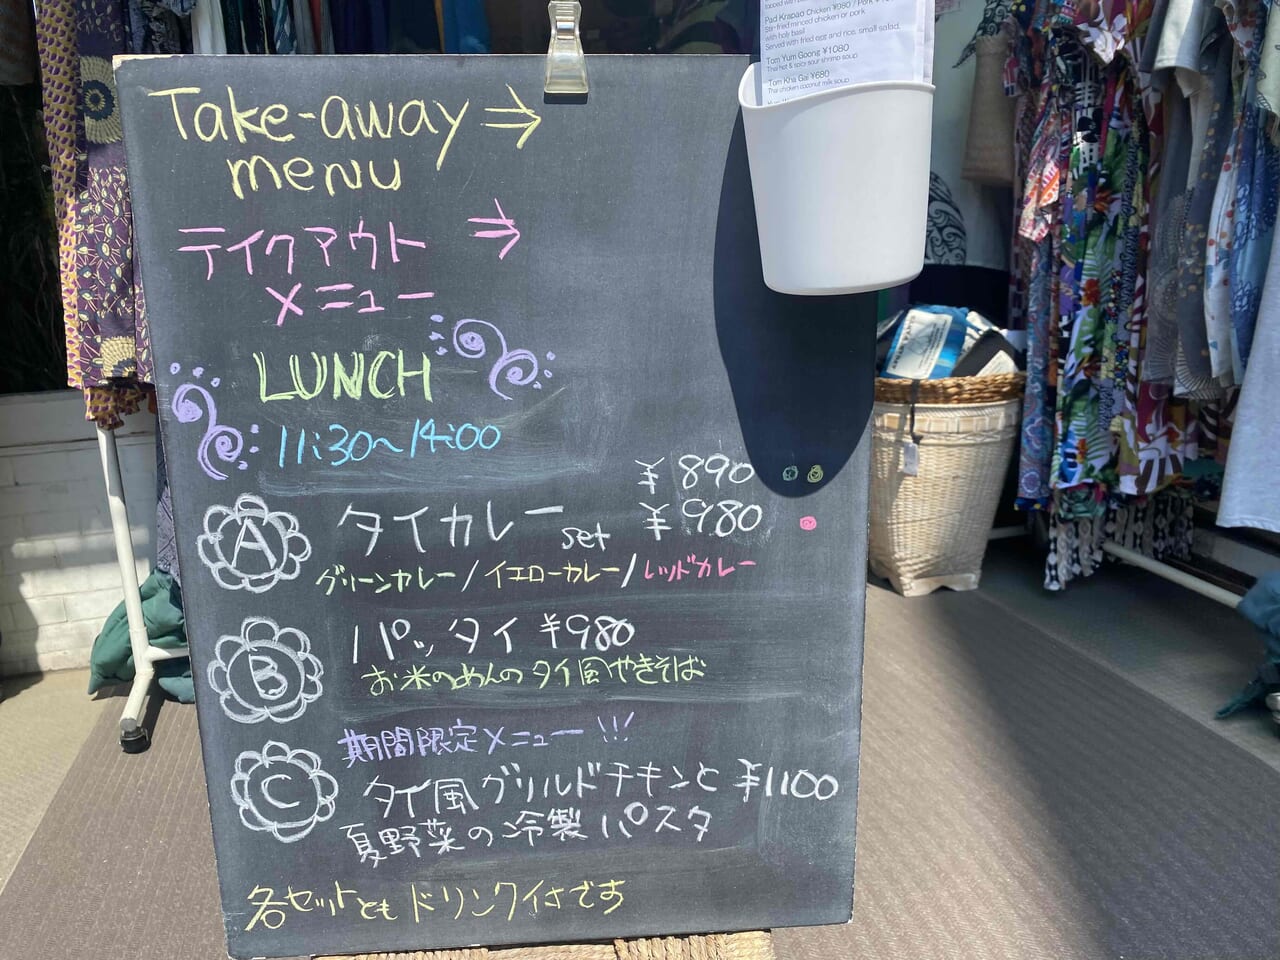 Pad Krapao Chicken ¥980 / Pork
Stir-fried minced chicken or pork
with holy basil
Served with fried egg and rice, small salad,
Tom Yum Goong ¥1080
Thai hot & spicy sour shrimp soup
Tom Kha Gai ¥680
Thai chicken coconut milk soup
Take-away →
menu
テイクアウト →
メニュー
LUNCH
11:30~14:00
¥890
A タイカレー set ¥980
グリーンカレー/イエローカレー/レッドカレー
B パッタイ ¥980
お米のめんのタイ風やきそば
期間限定メニュー!!!
C タイ風グリルドチキンと ¥1100
夏野菜の冷製パスタ
各セットともドリンク付です